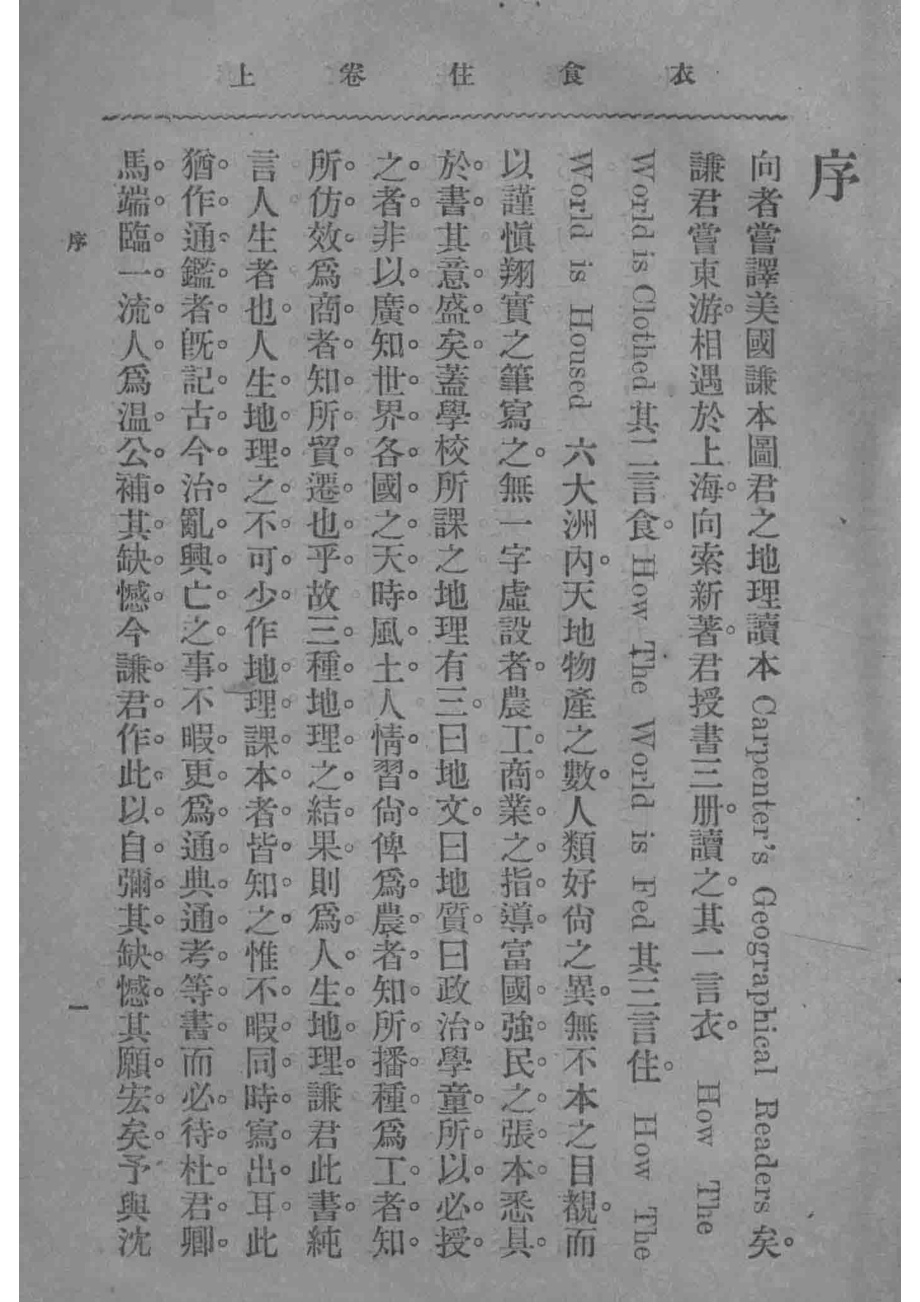 衣食住卷上
序
向者嘗譯美國謙本圖君之地理讀本 Carpenter's Geographical Readers 矣。
謙君嘗東游。相遇於上海。向索新著。君授書三册。讀之。其一言衣。 How The
World is Clothed 其二言食。How The World is Fed 其三言住。 How The
World is Housed 六大洲內。天地物產之數。人類好尙之異。無不本之目覩。而
以謹愼翔實之筆寫之。無一字虛設者。農工商業之指導。富國強民之張本。悉具
於書。其意盛矣。蓋學校所課之地理有三。曰地文。曰地質。曰政治。學童所以必授
之者。非以廣知世界各國之天時風土人情習尙。俾爲農者知所播種。爲工者知
所仿效。爲商者知所貿遷也乎。故三種地理之結果。則爲人生地理。謙君此書。純
言人生者也。人生地理之不可少。作地理課本者皆知之。惟不暇同時寫出耳。此
猶作通鑑者。旣記古今治亂興亡之事。不暇更爲通典通考等書。而必待杜君卿。
馬端臨一流人。爲温公補其缺憾。今謙君作此。以自彌其缺憾。其願宏矣。予與沈
序
一